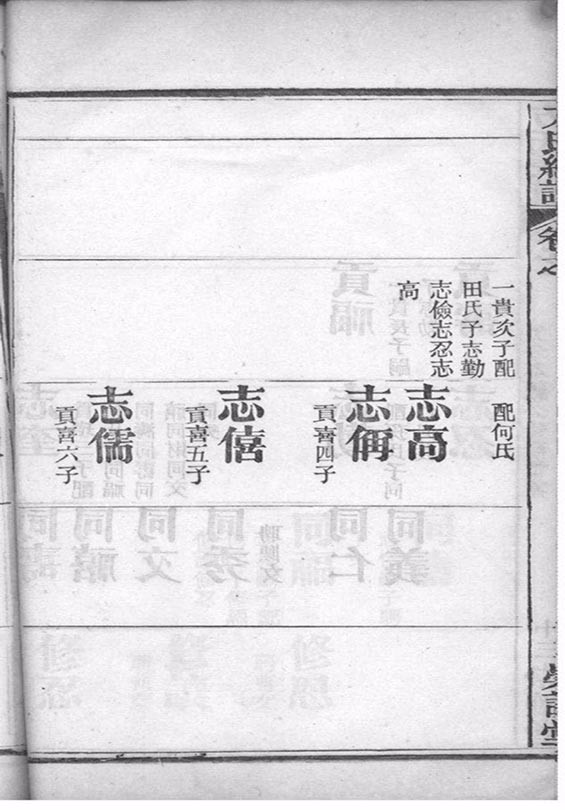 氏總譜
卷之
一貴次子配
田氏子志勤
志儉志忍志
高
配何氏
志高
志偁
貢喜四子
志僖
貢喜五子
志儒
貢喜六子